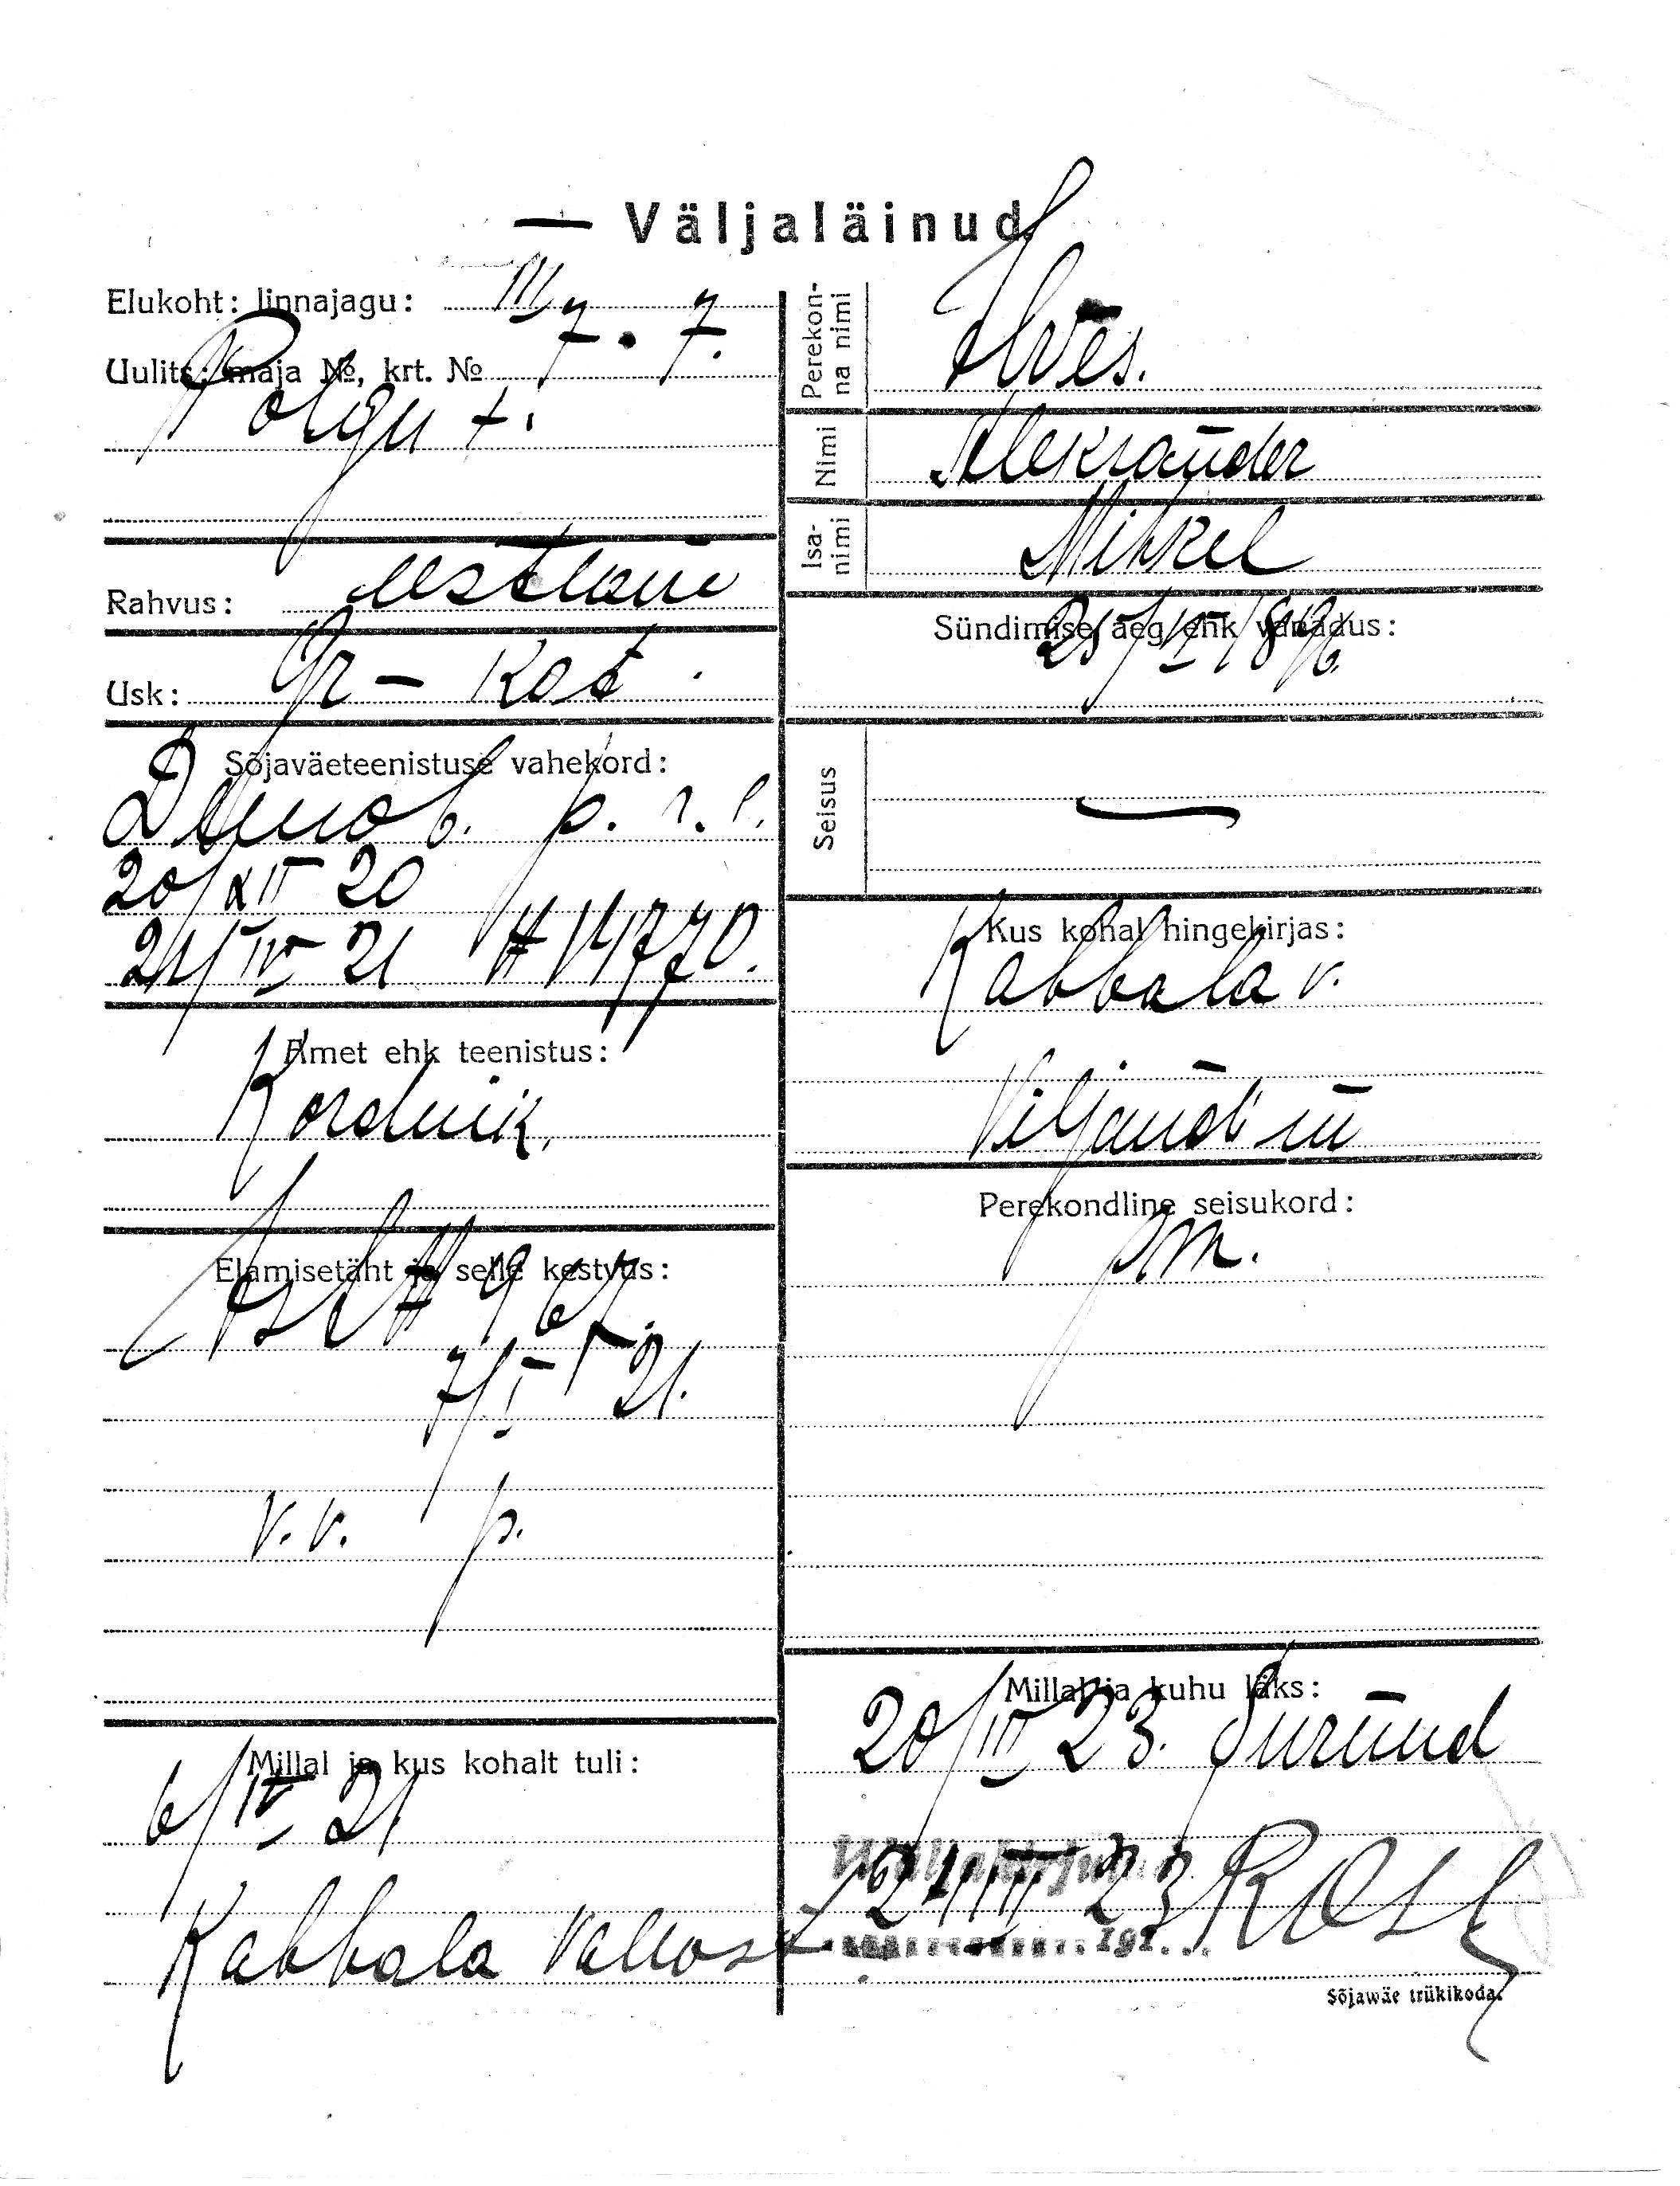 — Väljaläinud.
Elukoht: linnajagu: III
Uulits: maja №, krt. № 7 · 7.
Põlgu t.
Rahvus: eestlane
Usk: Gr – Kat.
Sõjaväeteenistuse vahekord:
Demob. p. r. l.
20/XII 20
21/IV 21 # 14770.
Amet ehk teenistus:
Kordnik.
Elamisetäht ja selle kestvus:
7/I 21.
v. v. p.
Millal ja kus kohalt tuli:
6/IV 21
Kabbala vallast
Perekonna nimi
Ilves.
Nimi
Aleksander
Isanimi
Mihkel
Sündimise aeg ehk vanadus:
1896.
Seisus
—
Kus kohal hingekirjas:
Kabbala v.
Viljandi m
Perekondline seisukord:
Millal ja kuhu läks:
20/III 23. Surnud
21/III 23
191...
Sõjawäe trükikoda.